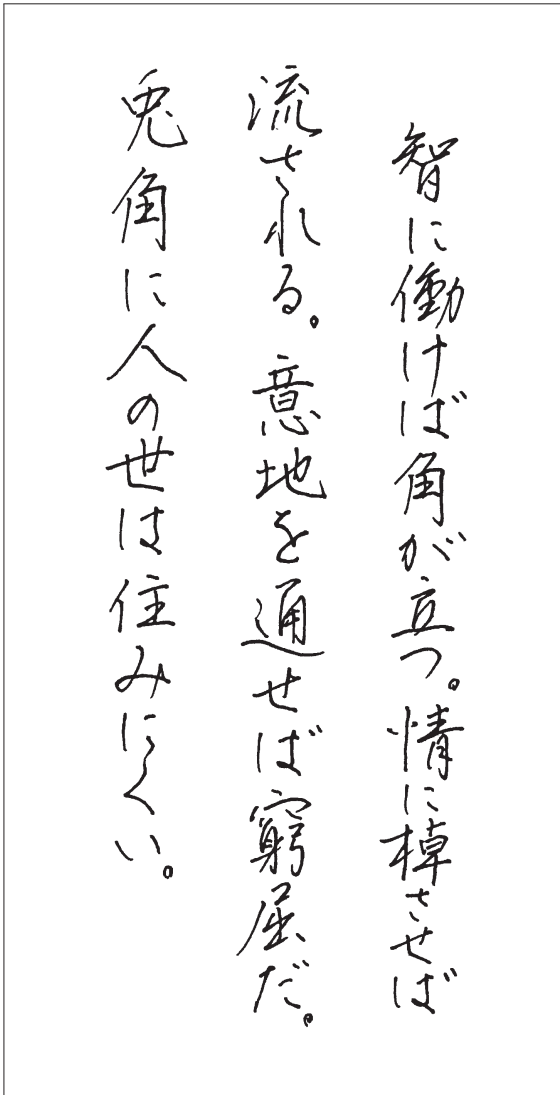 智に働けば角が立つ。情に棹させば
流される。意地を通せば窮屈だ。
兎角に人の世は住みにくい。